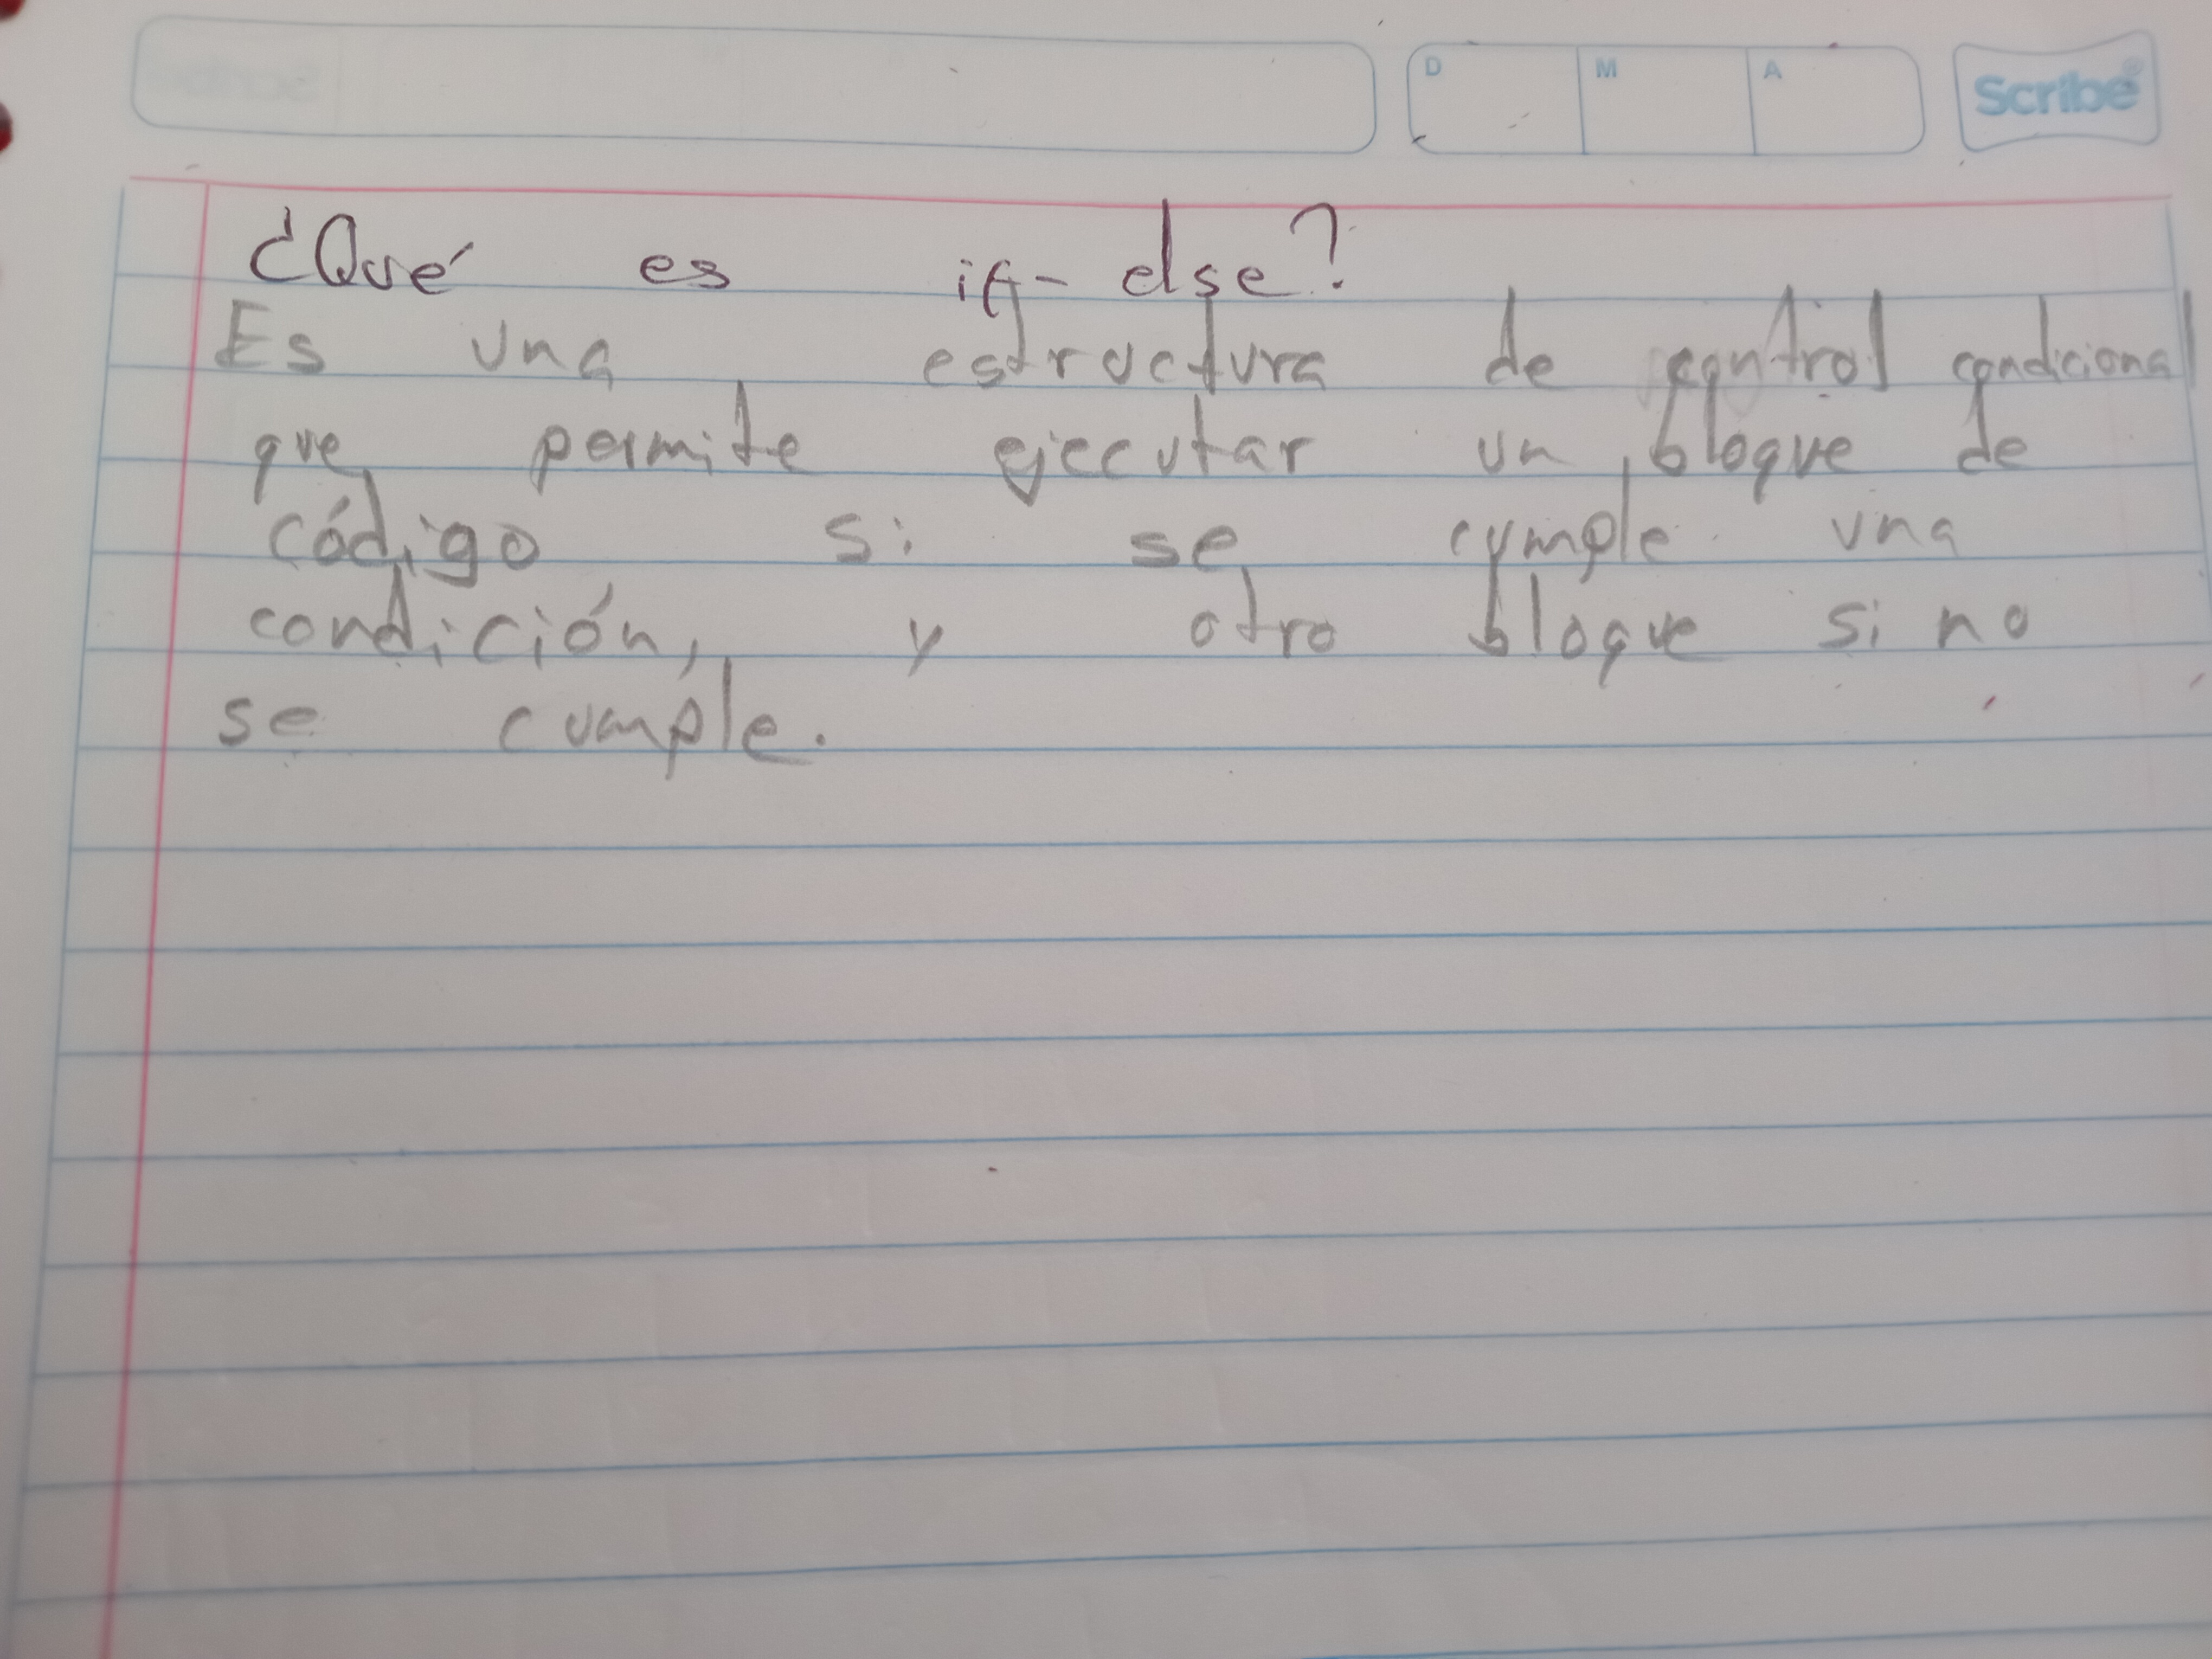 D M A Scribe®
¿Qué es if- else?
Es una estructura de control condicional
que permite ejecutar un bloque de
código si se cumple una
condición, y otro bloque si no
se cumple.